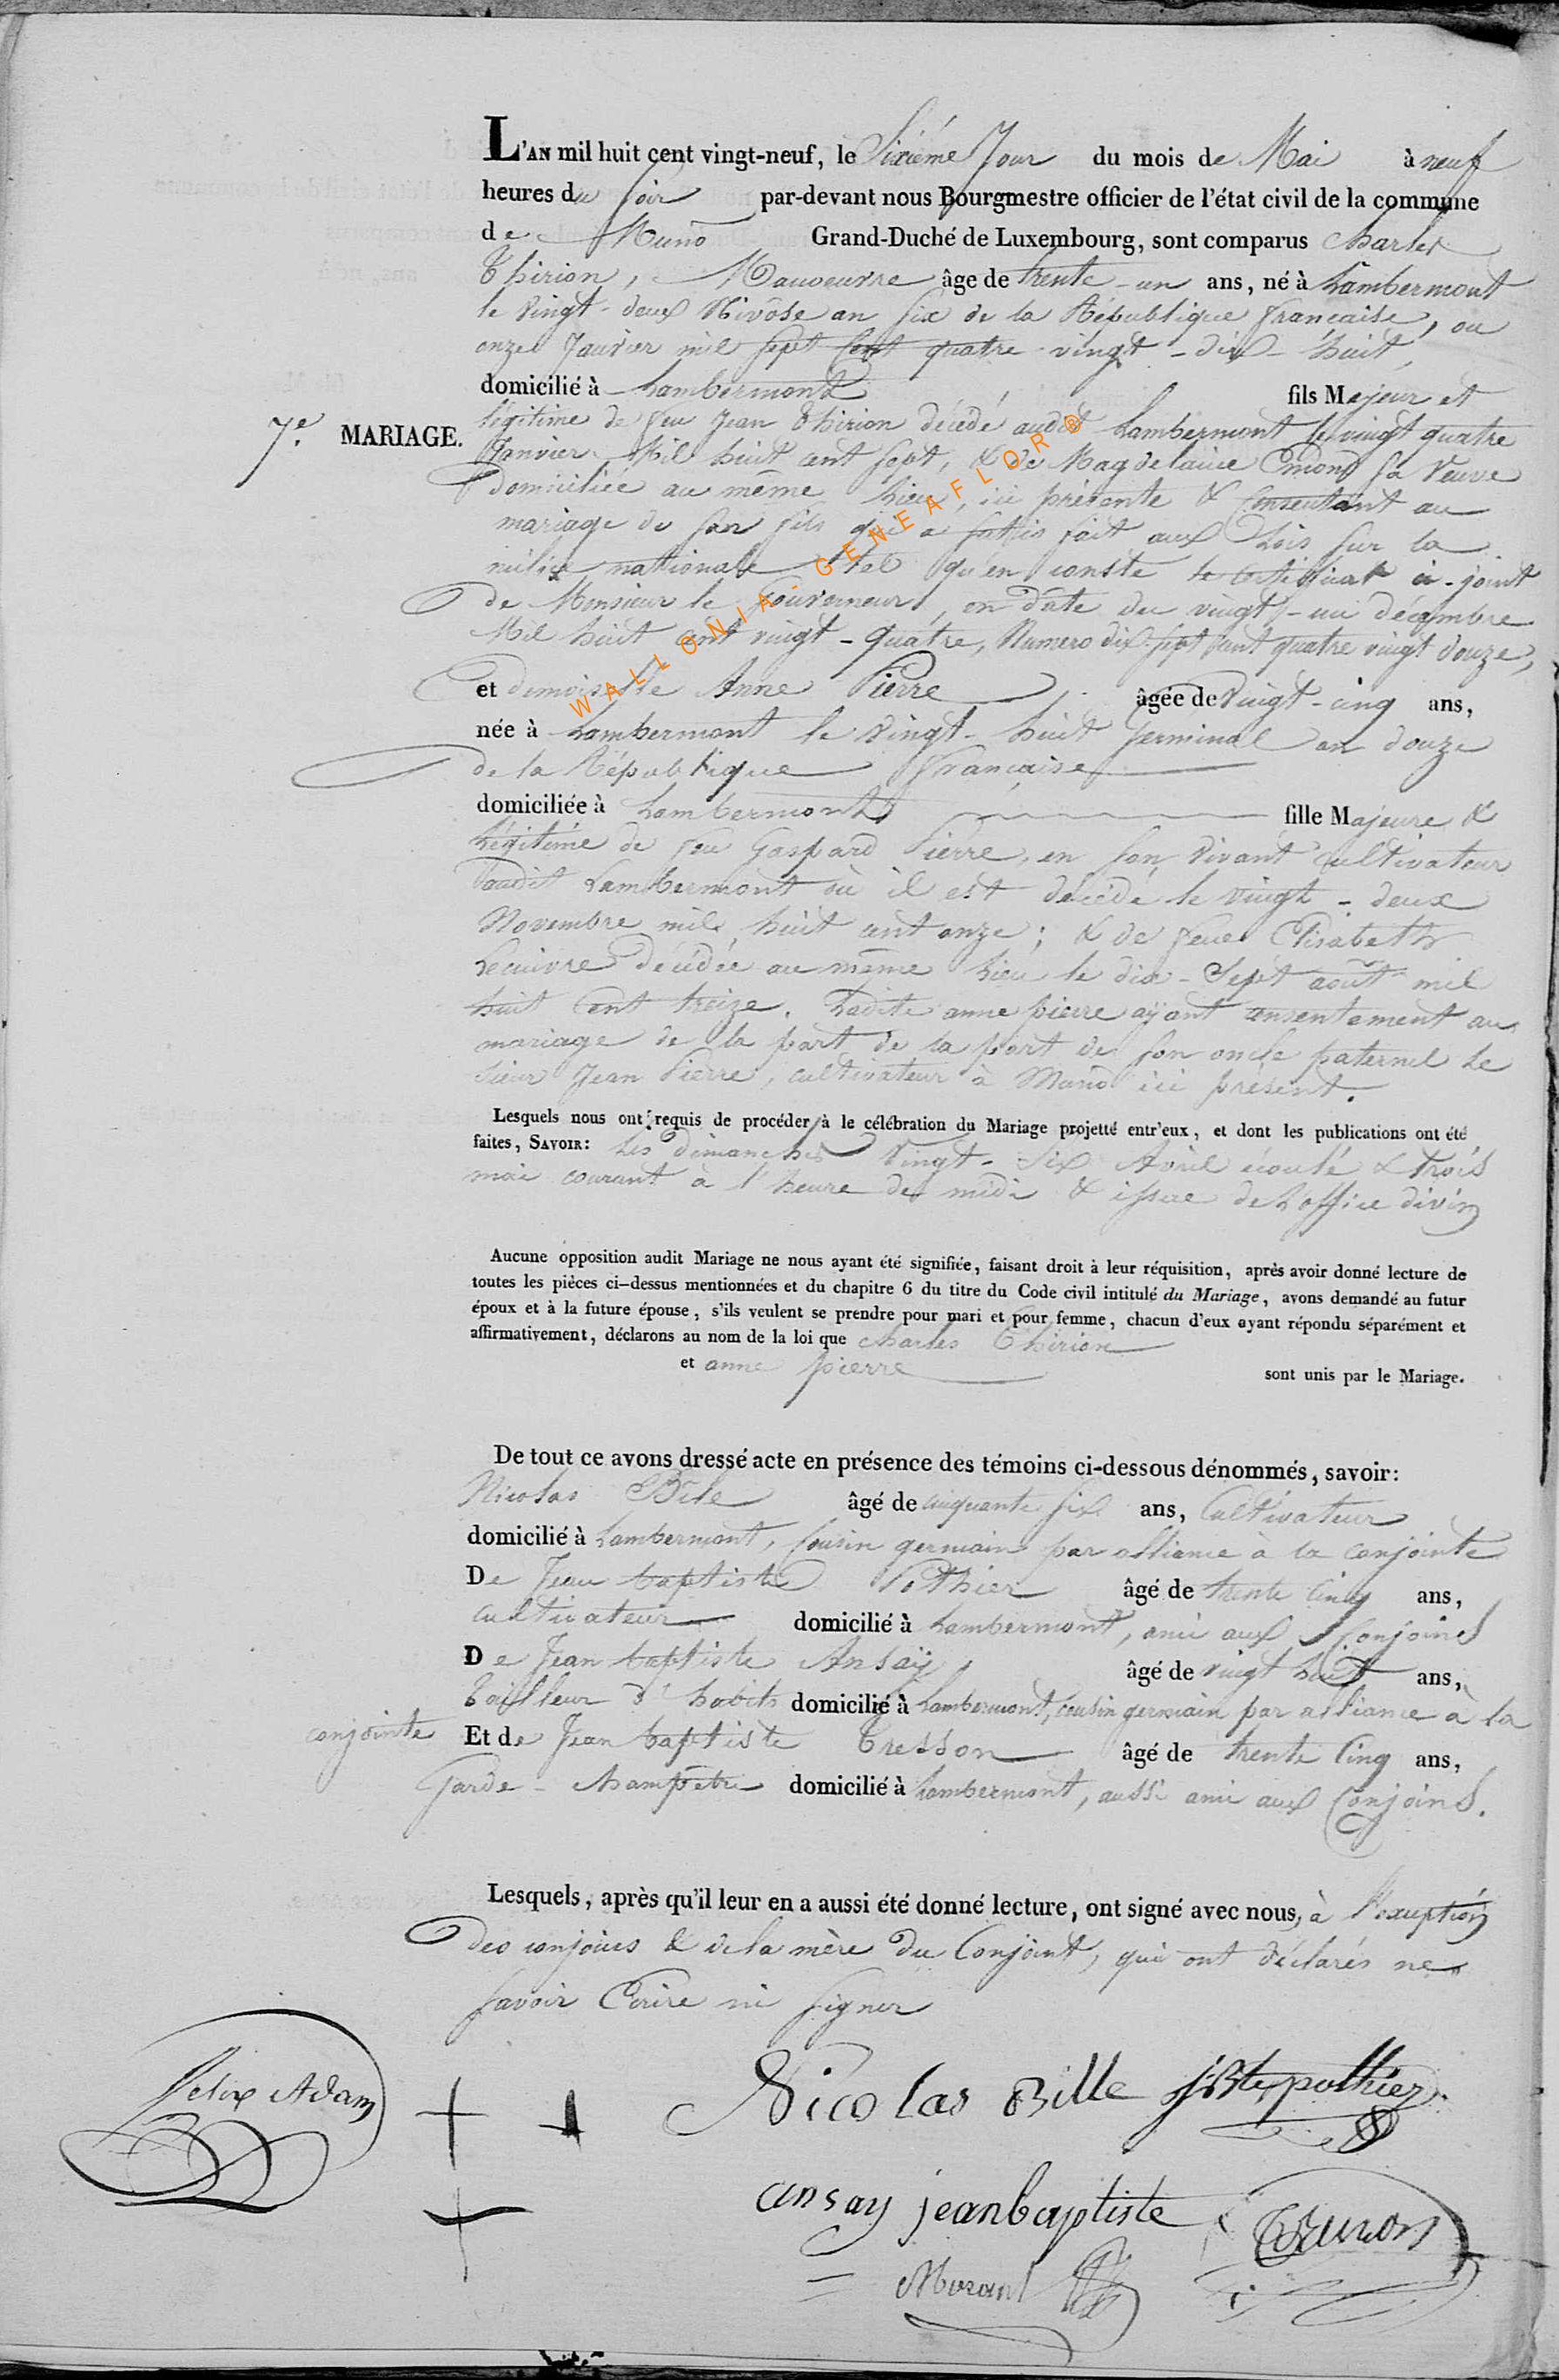 L'AN mil huit cent vingt-neuf, le Sixiéme Jour du mois de Mai à neuf
heures du soir par-devant nous Bourgmestre officier de l'état civil de la commune
de Muno Grand-Duché de Luxembourg, sont comparus Charles
Thirion, Manoeuvre âge de trente-un ans, né à Lambermont
le vingt-deux Nivôse an six de la République française, ou
onze Janvier mil sept cent quatre-vingt-dix-huit,
domicilié à Lambermont fils Majeur et
légitime de feu Jean Thirion décédé audit Lambermont le vingt quatre
7e. MARIAGE.
Janvier Mil huit cent sept, & de Magdelaine Emond sa Veuve
domiciliée au même lieu, ici présente & consentant au
mariage de son fils qui a satis fait aux Lois sur la
milice nationale tel qu'en conste le certificat ci-joint
de Monsieur le Gouverneur, en date du vingt-un décembre
Mil huit cent vingt-quatre, Numero dix-sept cent quatre vingt douze,
et demoiselle Anne Pierre âgée de vingt-cinq ans,
née à Lambermont le vingt-huit Germinal an douze
de la République française
domiciliée à Lambermont fille Majeure &
Légitime de feu Gaspard Pierre, en son vivant cultivateur
audit Lambermont où il est décédé le vingt-deux
Novembre mil huit cent onze; & de feue Elisabeth
Lecuivre décédée au même lieu le dix-sept août mil
huit cent treize. Ladite anne pierre ayant consentement au
mariage de la part de la part de son oncle paternel le
sieur Jean Pierre, cultivateur à Muno ici présent.
Lesquels nous ont requis de procéder à le célébration du Mariage projetté entr'eux, et dont les publications ont été
faites, SAVOIR: Les dimanches vingt-six Avril écoulé & trois
mai courant à l'heure de midi & issue de L'office divin
Aucune opposition audit Mariage ne nous ayant été signifiée, faisant droit à leur réquisition, après avoir donné lecture de
toutes les pièces ci-dessus mentionnées et du chapitre 6 du titre du Code civil intitulé du Mariage, avons demandé au futur
époux et à la future épouse, s'ils veulent se prendre pour mari et pour femme, chacun d'eux ayant répondu séparément et
affirmativement, déclarons au nom de la loi que Charles Thirion
et anne pierre sont unis par le Mariage.
De tout ce avons dressé acte en présence des témoins ci-dessous dénommés, savoir:
Nicolas Bile âgé de cinquante six ans, Cultivateur
domicilié à Lambermont, Cousin germain par alliance à la conjointe
De Jean baptiste Pothier âgé de trente cinq ans,
cultivateur domicilié à Lambermont, ami aux Conjoins
De Jean baptiste Ansay, âgé de vingt huit ans,
tailleur d'habits domicilié à Lambermont, cousin germain par alliance à la
conjointe Et de Jean baptiste Tresson âgé de trente cinq ans,
Garde-champêtre domicilié à Lambermont, aussi ami aux Conjoins.
Lesquels, après qu'il leur en a aussi été donné lecture, ont signé avec nous, à l'exception
des conjoins & de la mère du Conjoint, qui ont déclarés ne
savoir Ecrire ni signer
Felix Adam
Nicolas Bille jBte pothier
ansay jeanbaptiste
WALLONIA-GENEAFLOR®